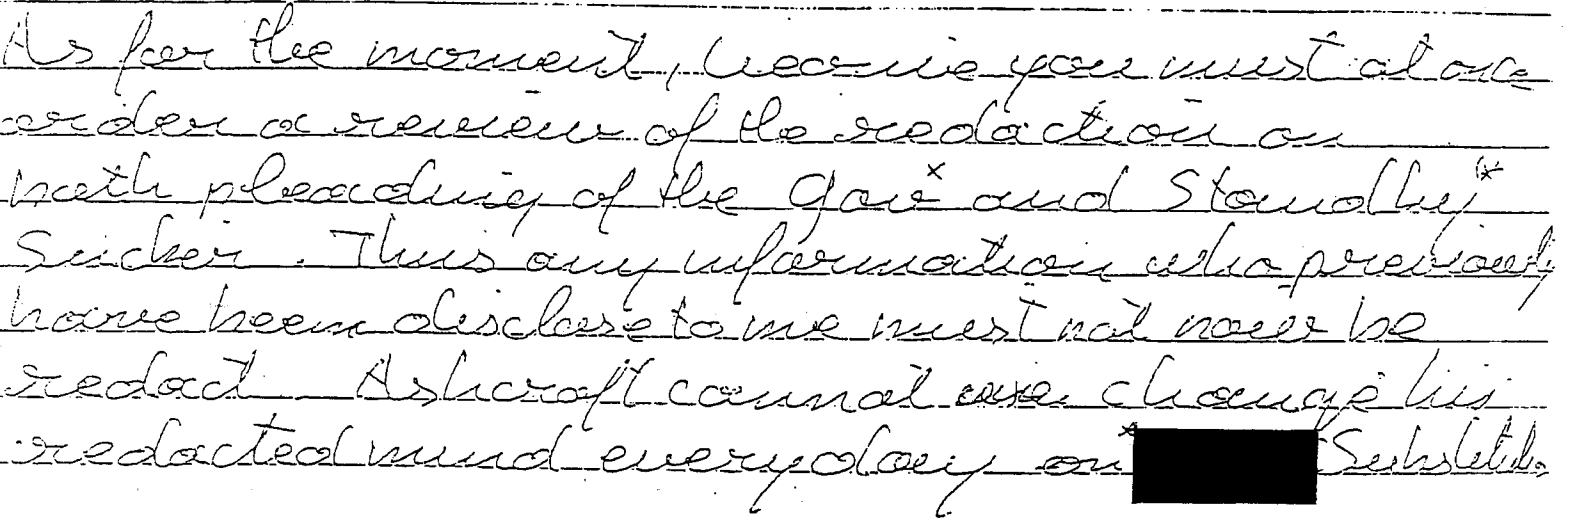 As for the moment, Leonie you must at once
order a review of the redaction on
both pleading of the Gov* and Standby*
Sucker. Thus any information who previously
have been disclose to me must not now be
redact Ashcroft cannot change his
redacted mind everyday on*